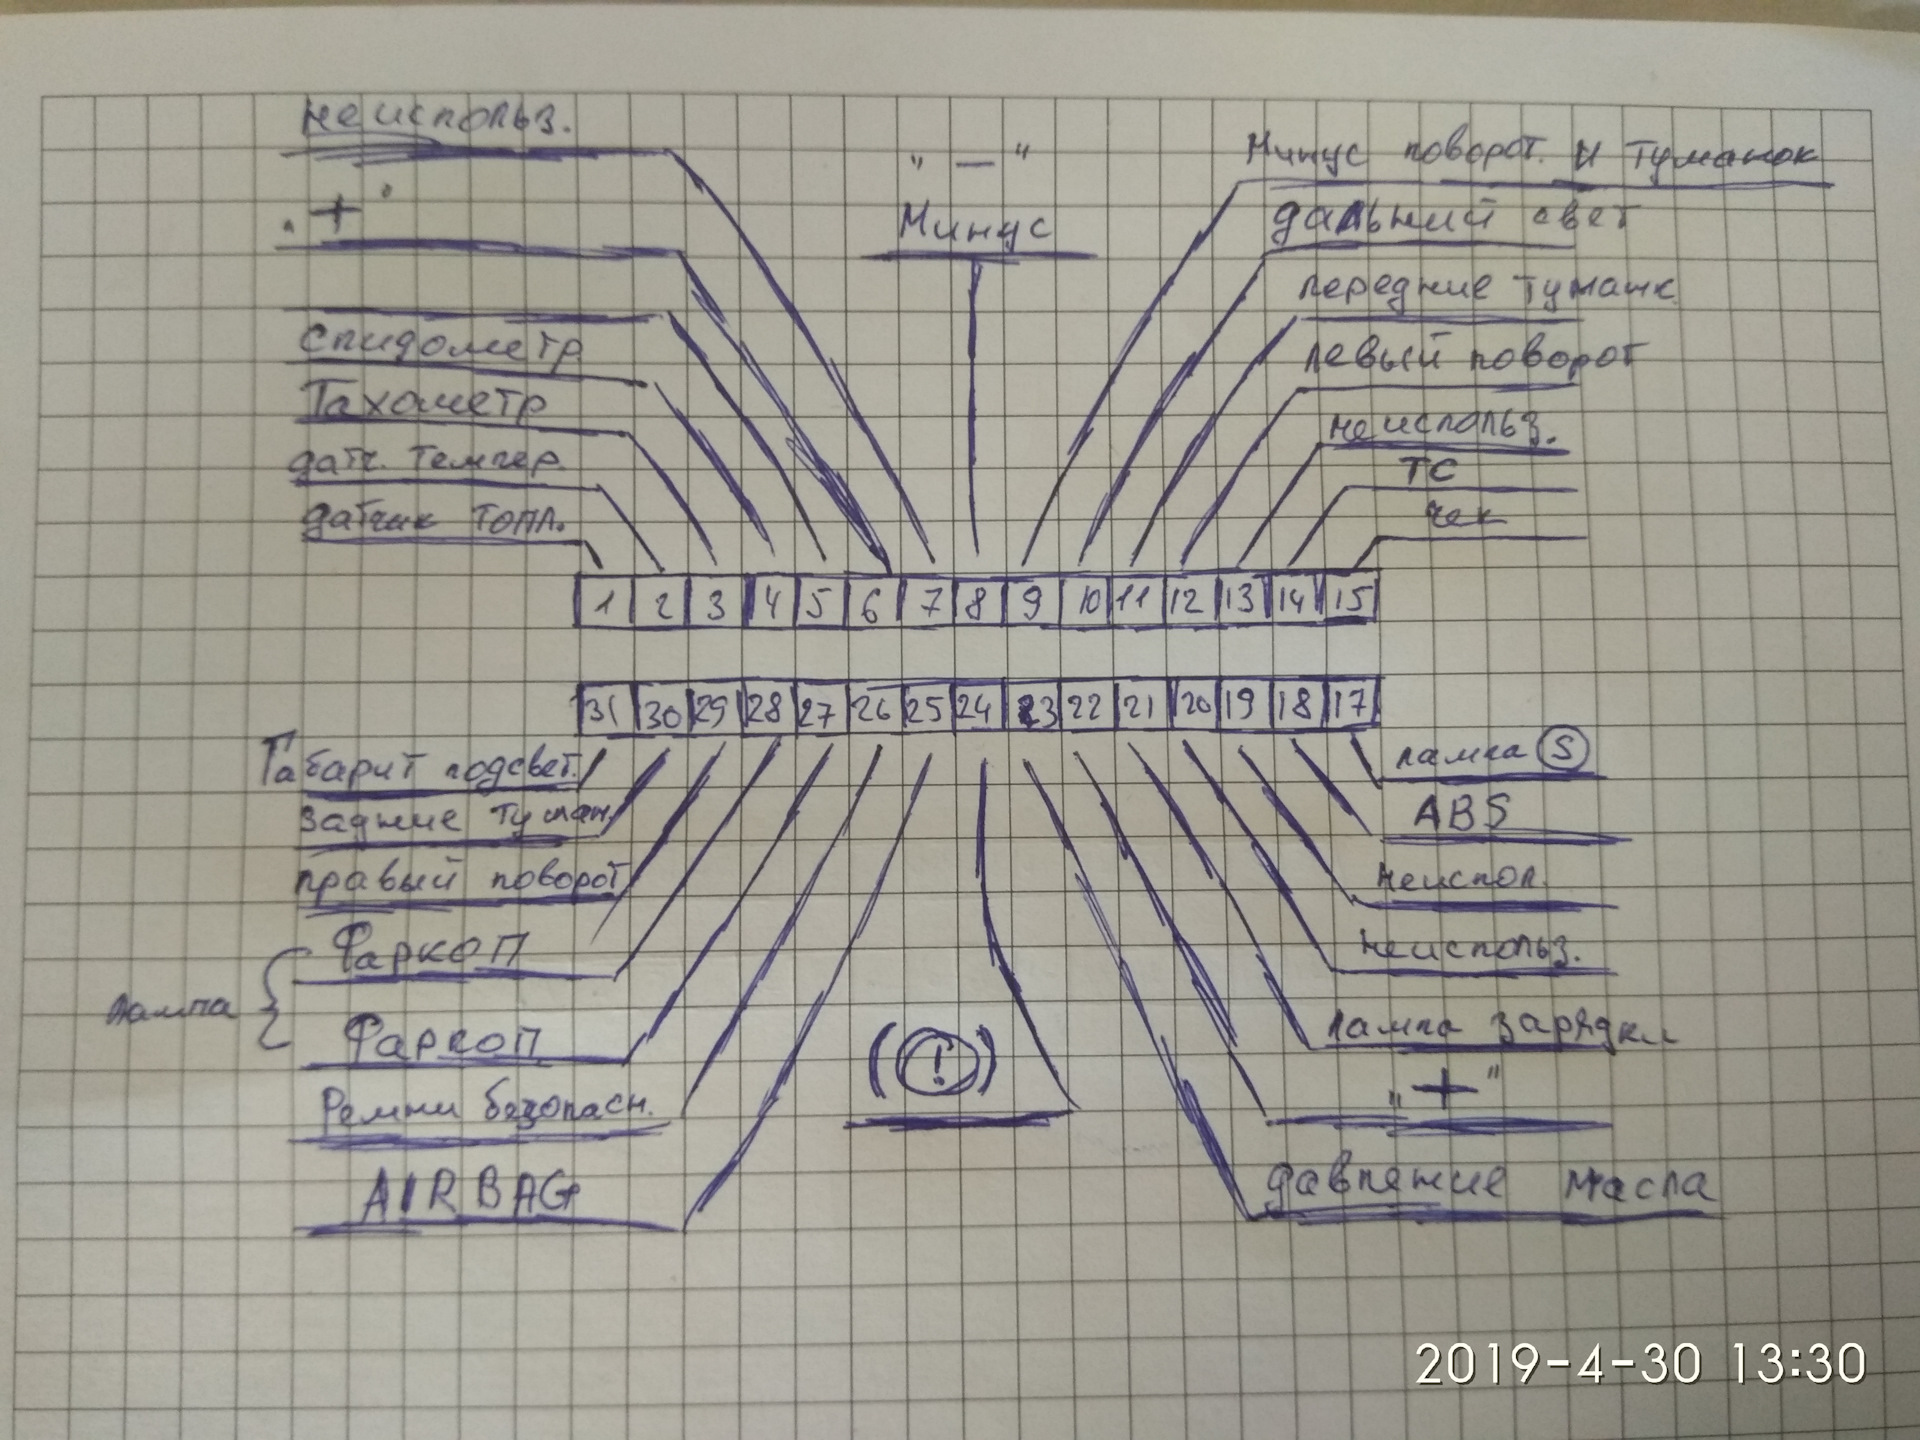 неиспольз.
"+"
Спидометр
Тахометр
датч. темпер.
датчик топл.
"—"
Минус
Минус поворот. и туманок
дальний свет
передние туманк
левый поворот
неиспольз.
ТС
чек
1 2 3 4 5 6 7 8 9 10 11 12 13 14 15
31 30 29 28 27 26 25 24 23 22 21 20 19 18 17
Габарит подсвет.
задние туман.
правый поворот
лампа
Фаркоп
Фаркоп
Ремни безопасн.
AIRBAG
(!)
лампа S
ABS
неиспол.
неиспольз.
лампа зарядки
"+"
давление масла
2019-4-30 13:30